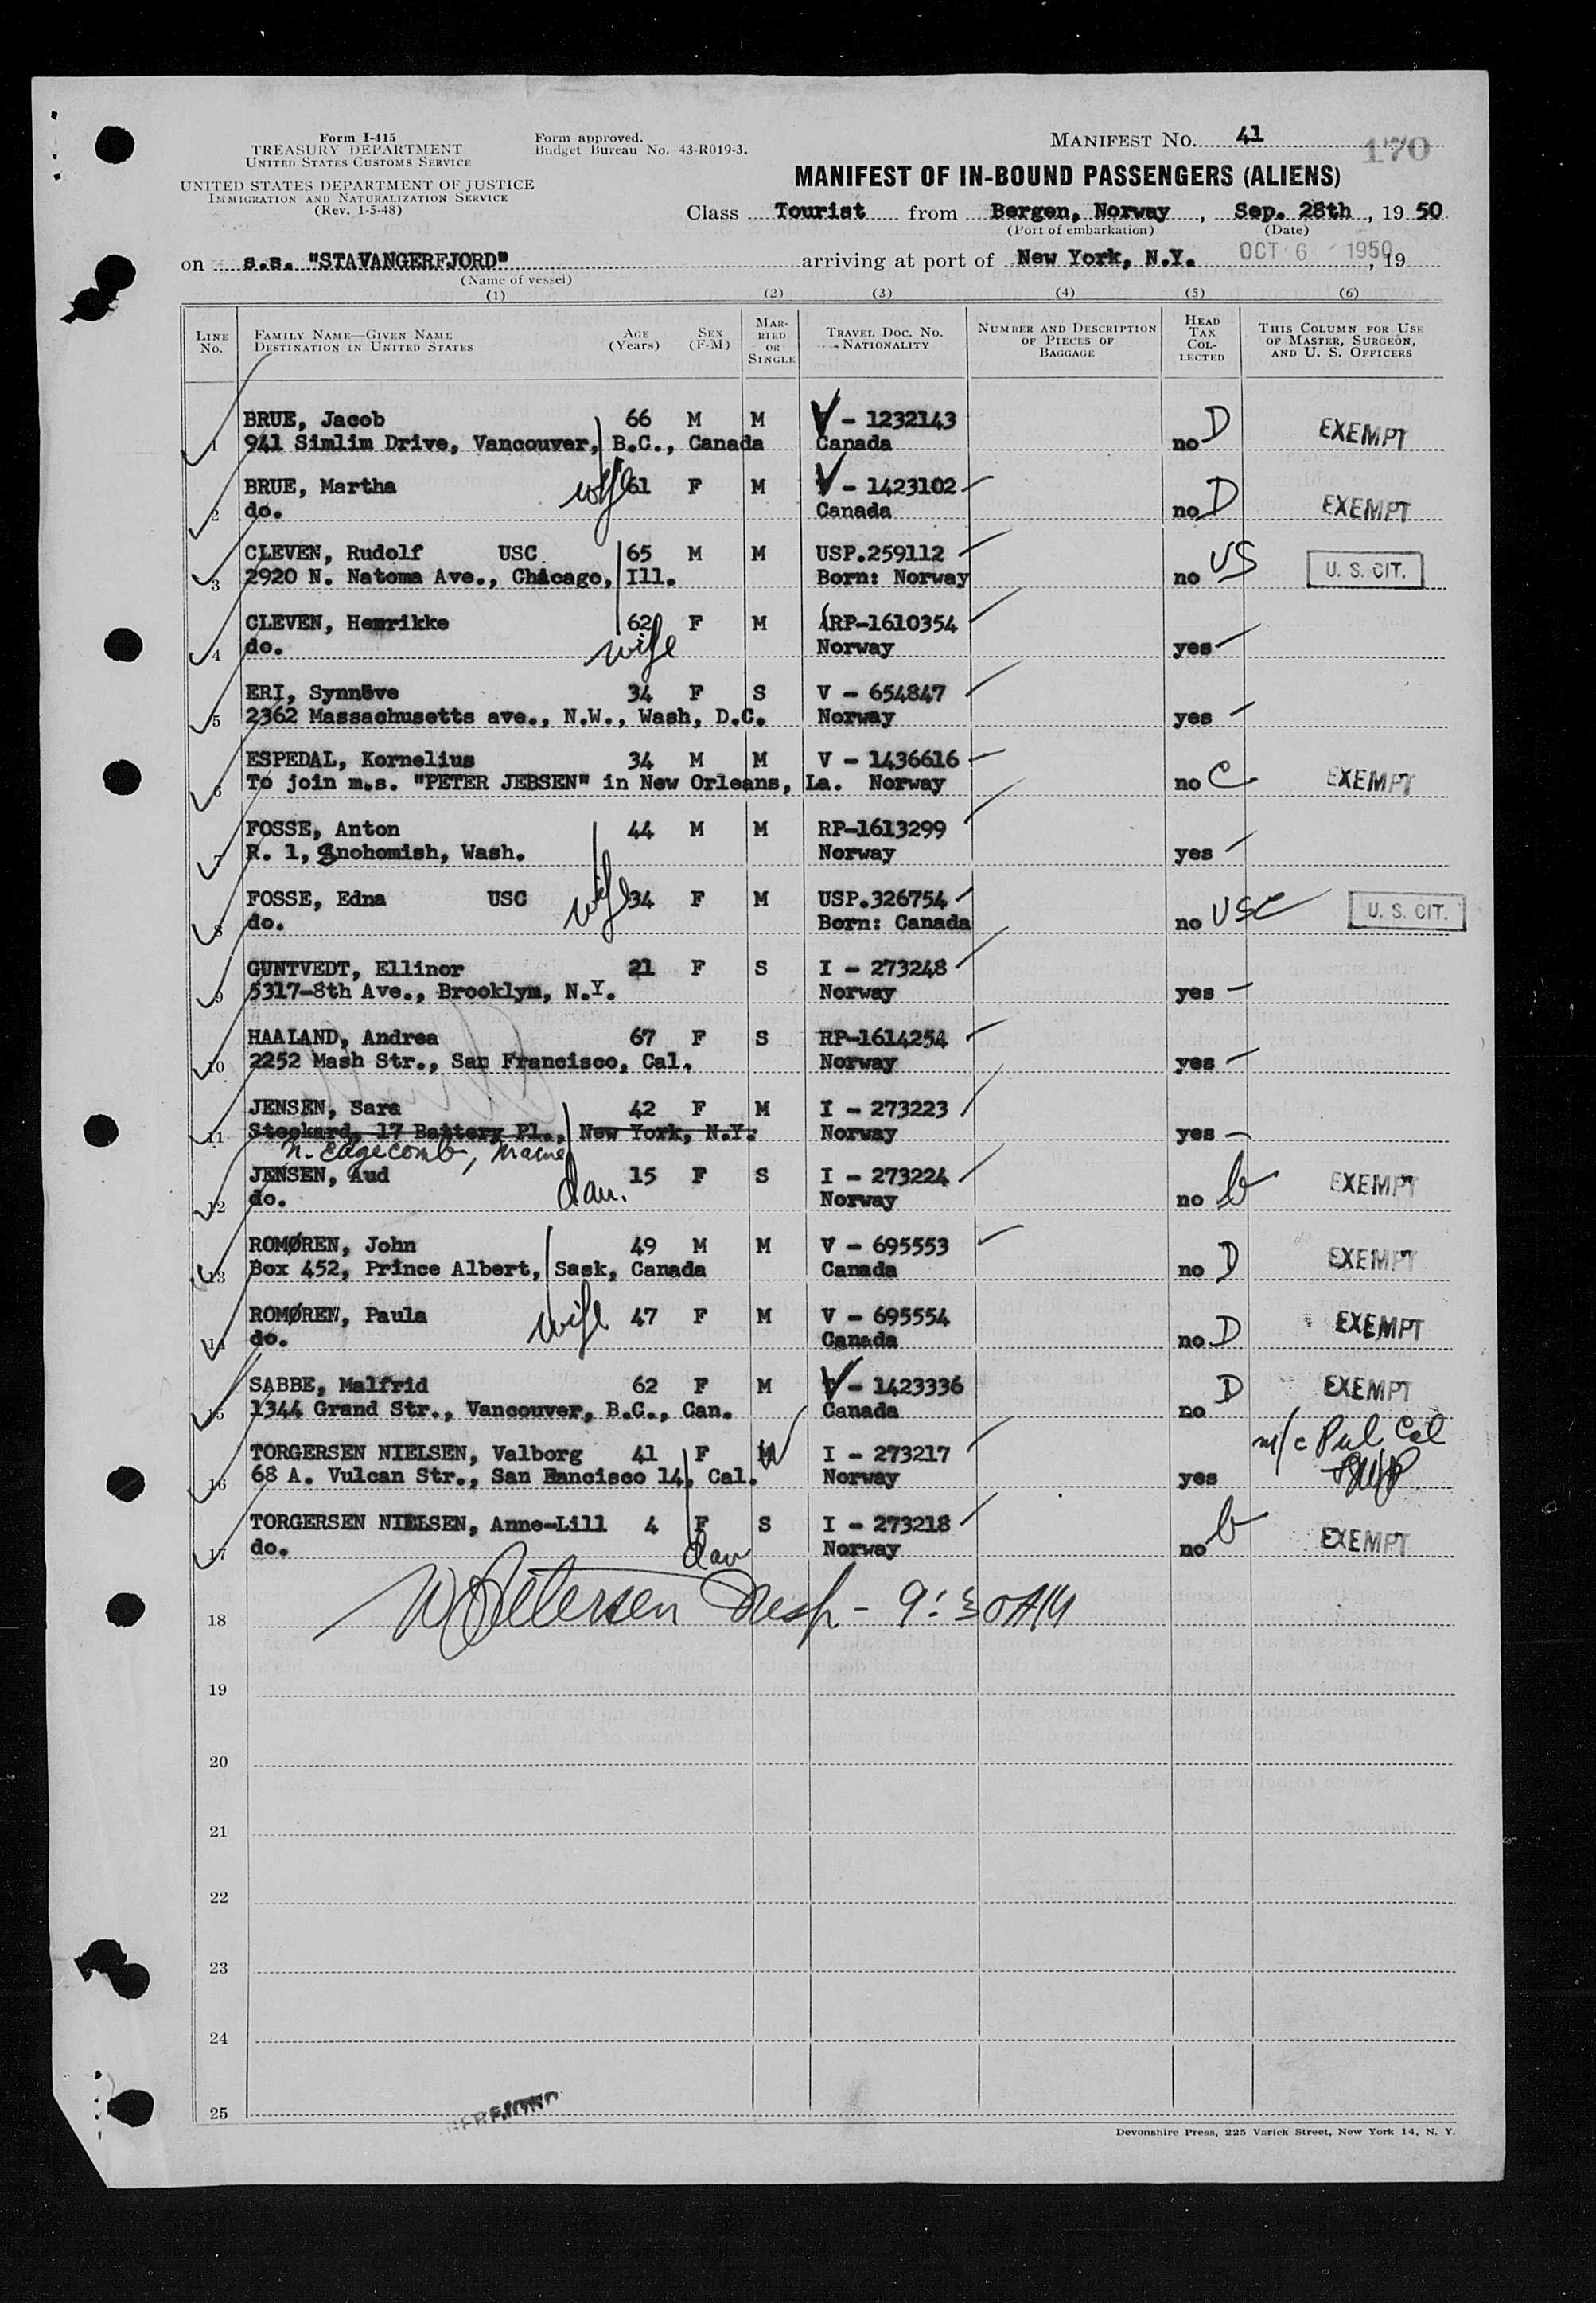 Form I-415
TREASURY DEPARTMENT
UNITED STATES CUSTOMS SERVICE
UNITED STATES DEPARTMENT OF JUSTICE
IMMIGRATION AND NATURALIZATION SERVICE
(Rev. 1-5-48)
Form approved.
Budget Bureau No. 43-R019-3.
MANIFEST No. 41
170
MANIFEST OF IN-BOUND PASSENGERS (ALIENS)
Class Tourist from Bergen, Norway, Sep. 28th, 19 50
(Port of embarkation) (Date)
on s.s. "STAVANGERFJORD" arriving at port of New York, N.Y. OCT 6 1950, 19
(Name of vessel)
(1) (2) (3) (4) (5) (6)
LINE No. FAMILY NAME—GIVEN NAME DESTINATION IN UNITED STATES AGE (Years) SEX (F-M) MARRIED OR SINGLE TRAVEL DOC. NO. NATIONALITY NUMBER AND DESCRIPTION OF PIECES OF BAGGAGE HEAD TAX COLLECTED THIS COLUMN FOR USE OF MASTER, SURGEON, AND U. S. OFFICERS
BRUE, Jacob 66 M M V - 1232143 D EXEMPT
1 941 Simlim Drive, Vancouver, B.C., Canada Canada no
BRUE, Martha wife 61 F M V - 1423102 D EXEMPT
2 do. Canada no
CLEVEN, Rudolf USC 65 M M USP.259112 US U. S. CIT.
3 2920 N. Natoma Ave., Chicago, Ill. Born: Norway no
CLEVEN, Henrikke 62 F M RP-1610354
4 do. wife Norway yes
ERI, Synnöve 34 F S V - 654847
5 2362 Massachusetts ave., N.W., Wash, D.C. Norway yes
ESPEDAL, Kornelius 34 M M V - 1436616
6 To join m.s. "PETER JEBSEN" in New Orleans, La. Norway no C EXEMPT
FOSSE, Anton 44 M M RP-1613299
7 R. 1, Snohomish, Wash. Norway yes
FOSSE, Edna USC wife 34 F M USP.326754
8 do. Born: Canada no USC U. S. CIT.
GUNTVEDT, Ellinor 21 F S I - 273248
9 5317-8th Ave., Brooklyn, N.Y. Norway yes
HAALAND, Andrea 67 F S RP-1614254
10 2252 Mash Str., San Francisco, Cal. Norway yes
JENSEN, Sara 42 F M I - 273223
11 Stockard, 17 Battery Pl., New York, N.Y. Norway yes
N. Edgecomb, Maine
JENSEN, Aud dau. 15 F S I - 273224
12 do. Norway no b EXEMPT
ROMØREN, John 49 M M V - 695553
13 Box 452, Prince Albert, Sask, Canada Canada no D EXEMPT
ROMØREN, Paula wife 47 F M V - 695554
14 do. Canada no D EXEMPT
SABBE, Malfrid 62 F M V - 1423336 D EXEMPT
15 1344 Grand Str., Vancouver, B.C., Can. Canada no
TORGERSEN NIELSEN, Valborg 41 F W I - 273217
16 68 A. Vulcan Str., San Fancisco 14, Cal. Norway yes
TORGERSEN NIELSEN, Anne-Lill 4 F S I - 273218 b EXEMPT
17 do. dau Norway no
18 Petersen Insp - 9:30 AM
19
20
21
22
23
24
25
Devonshire Press, 225 Varick Street, New York 14, N. Y.